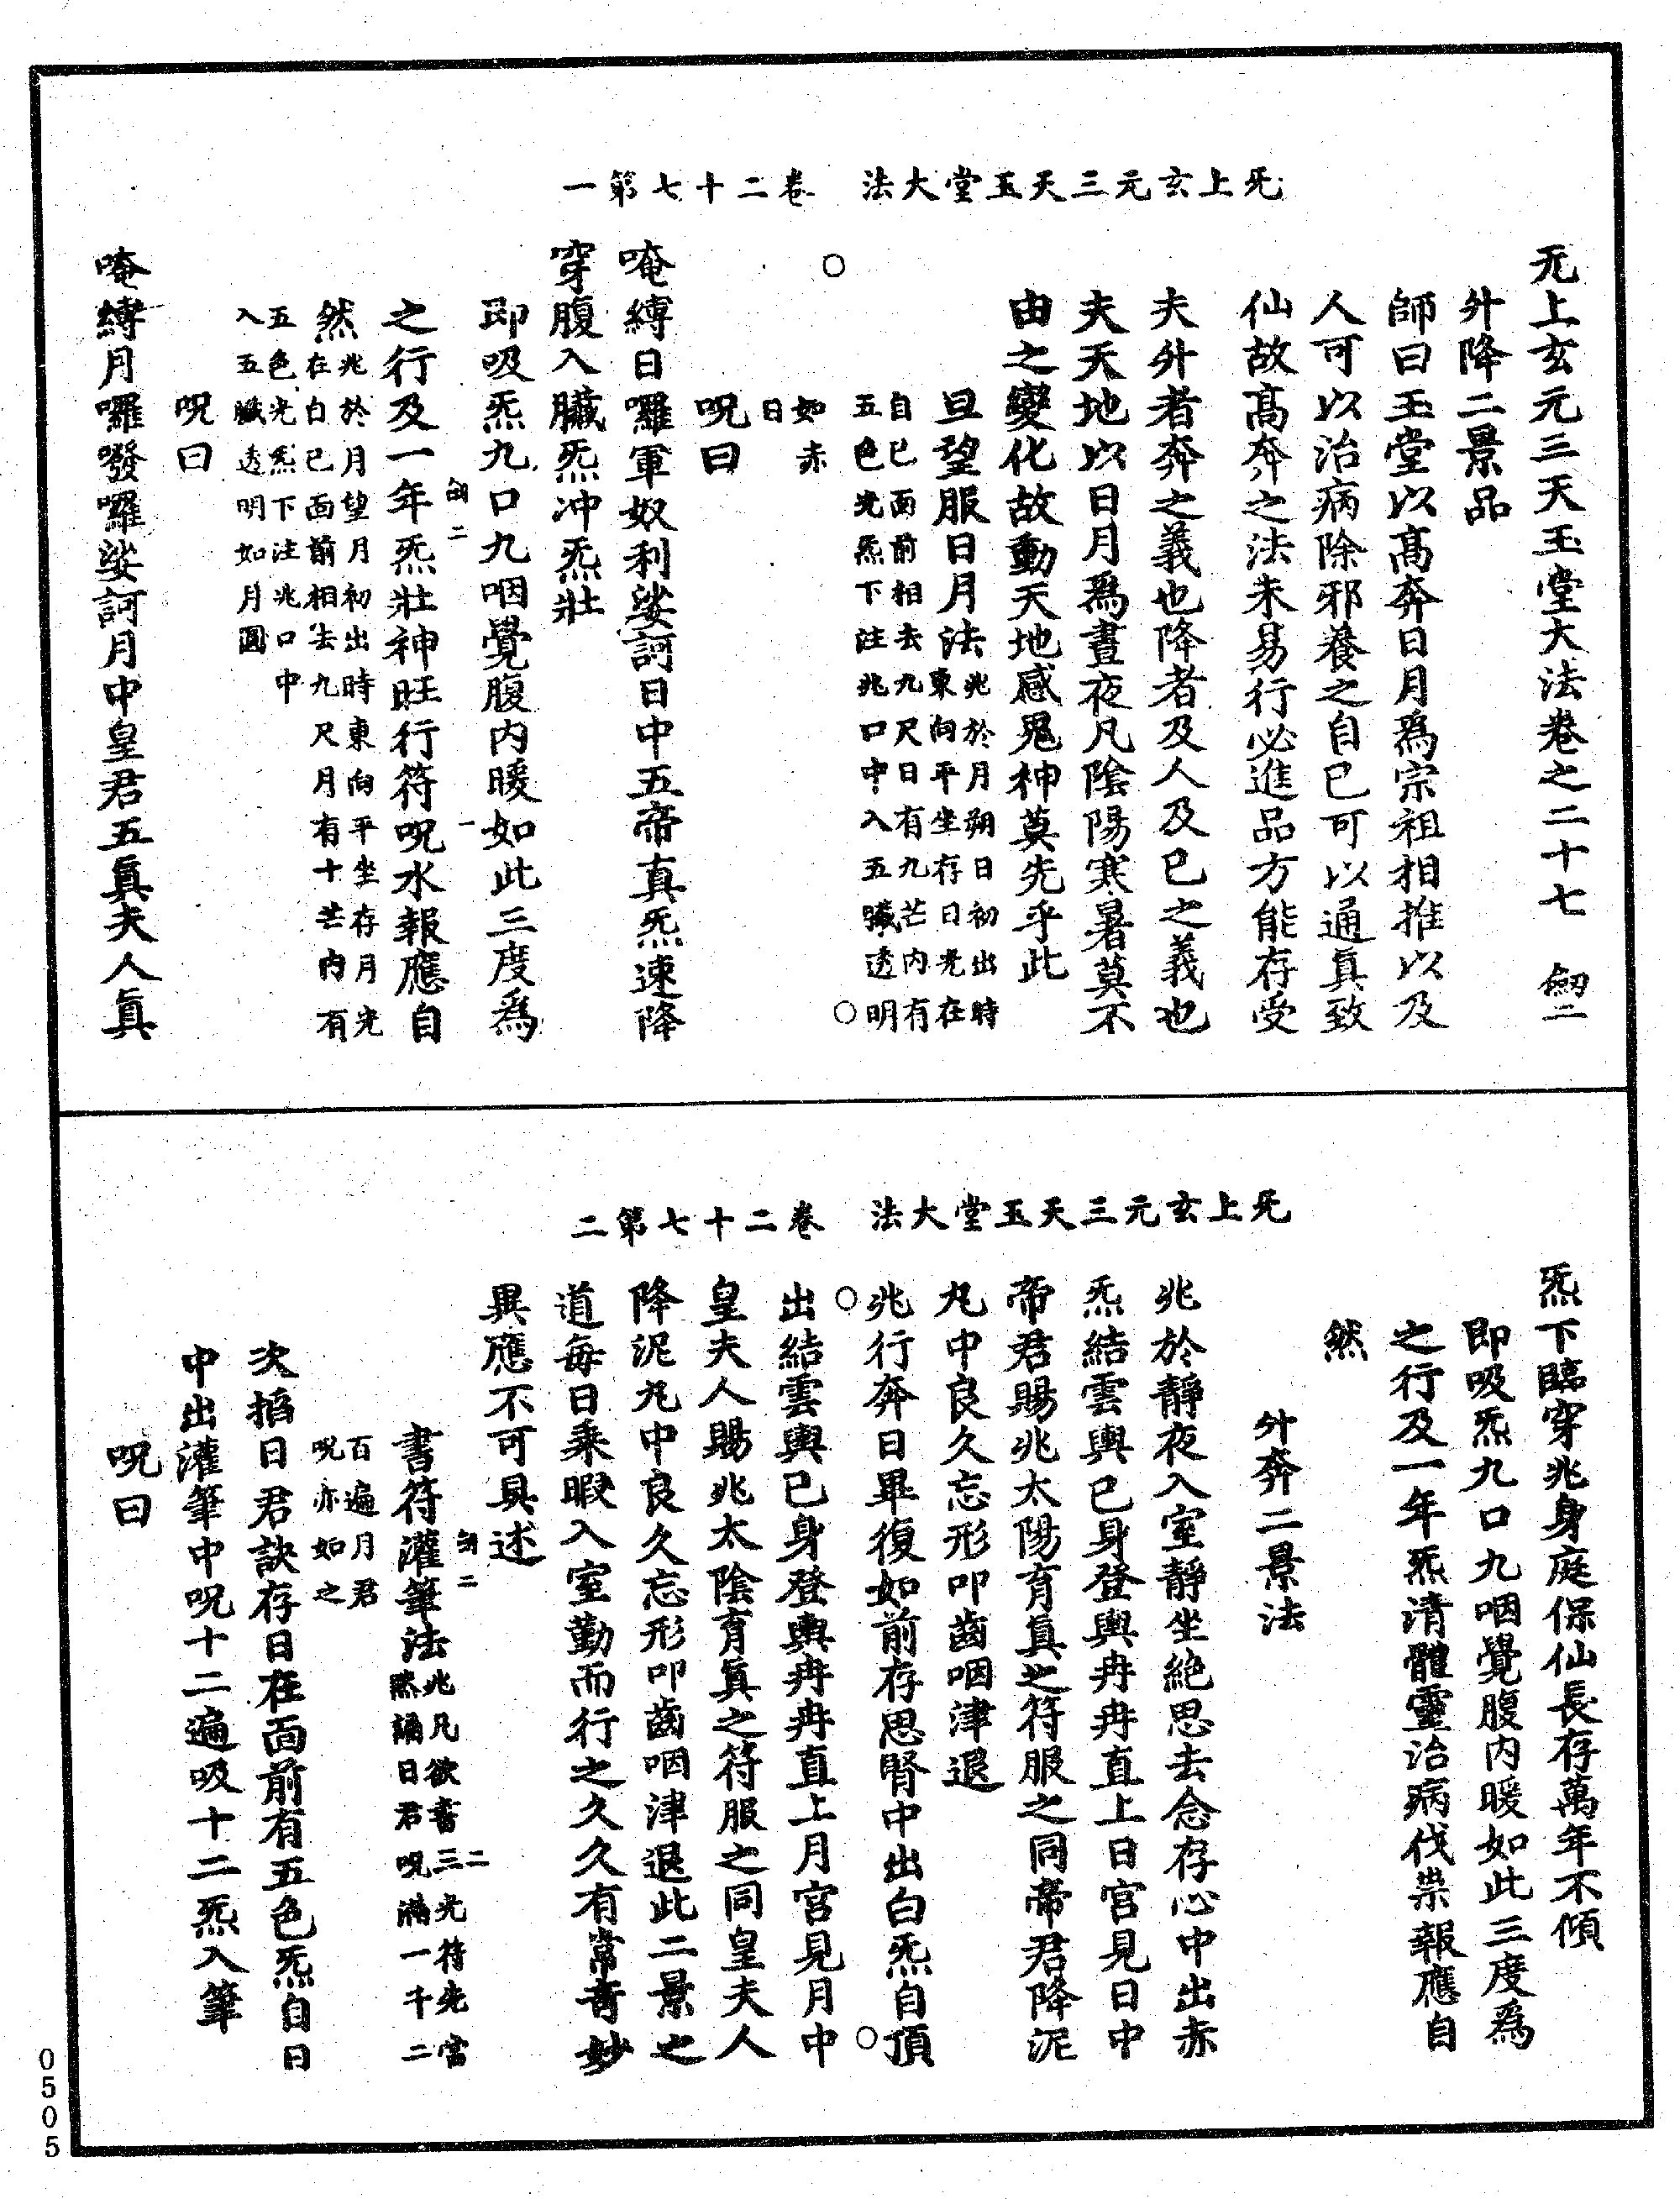 无上玄元三天玉堂大法　卷二十七第一
无上玄元三天玉堂大法卷之二十七　劒二
升降二景品
師曰玉堂以高奔日月爲宗祖相推以及
人可以治病除邪養之自已可以通真致
仙故髙奔之法未易行必進品方能存受
夫升者奔之義也降者及人及已之義也
夫天地以日月爲晝夜凡陰陽寒暑莫不
由之變化故動天地感鬼神莫先乎此
旦望服日月法兆於月朔日初出時
東向平坐存日光在
自已面前相去九尺日有九芒内有
五色光炁下注兆口中入五臟透明
如赤
日
呪曰
唵縛日囉軍奴利娑訶日中五帝真炁速降
穿腹入臟炁冲炁壯
即吸炁九口九咽覺腹内暖如此三度爲
劒二　一
之行及一年炁壯神旺行符呪水報應自
然兆於月望月初出時東向平坐存月光
在自已面前相去九尺月有十芒内有
五色光炁下注兆口中
入五臟透明如月圓
呪曰
唵縛月囉㗶囉娑訶月中皇君五眞夫人眞
无上玄元三天玉堂大法　卷二十七第二
炁下臨穿兆身庭保仙長存萬年不傾
即吸炁九口九咽覺腹内暖如此三度爲
之行及一年炁清體靈治病伐祟報應自
然
升奔二景法
兆於靜夜入室靜坐絶思去念存心中出赤
炁結雲輿已身登輿冉冉直上日宮見日中
帝君賜兆太陽育眞之符服之同帝君降泥
丸中良久忘形叩齒咽津退
兆行奔日畢復如前存思腎中出白炁自頂
出結雲輿已身登輿冉冉直上月宮見月中
皇夫人賜兆太陰育眞之符服之同皇夫人
降泥丸中良久忘形叩齒咽津退此二景之
道毎日乘暇入室勤而行之久久有常竒妙
異應不可具述
劒二　二
書符灌筆法兆凡欲書三光符先當
黙誦日君呪滿一千二
百遍月君
呪亦如之
次掐日君訣存日在面前有五色炁自日
中出灌筆中呪十二遍吸十二炁入筆
呪曰
0505